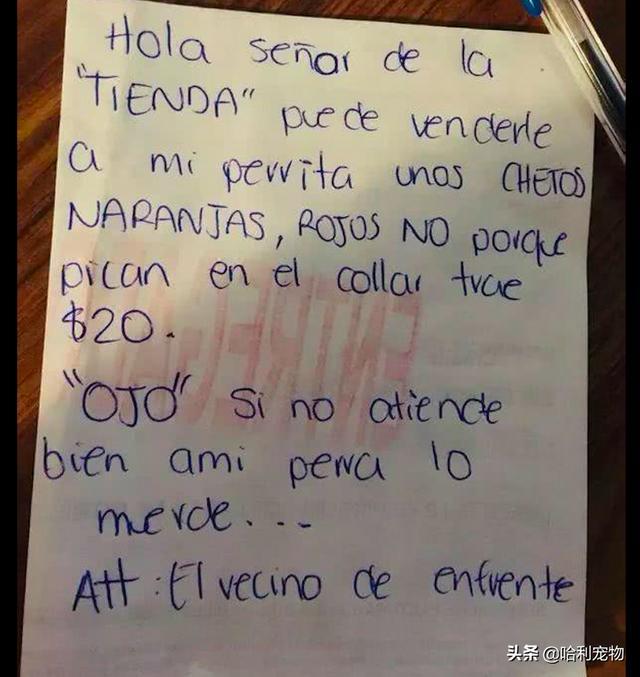 Hola señor de la
"TIENDA" puede venderle
a mi perrita unos CHETOS
NARANJAS, ROJOS NO porque
pican en el collar trae
$20.
"OJO" Si no atiende
bien ami perra lo
merde...
Att: El vecino de enfrente
ENTREGADO
头条 @哈利宠物